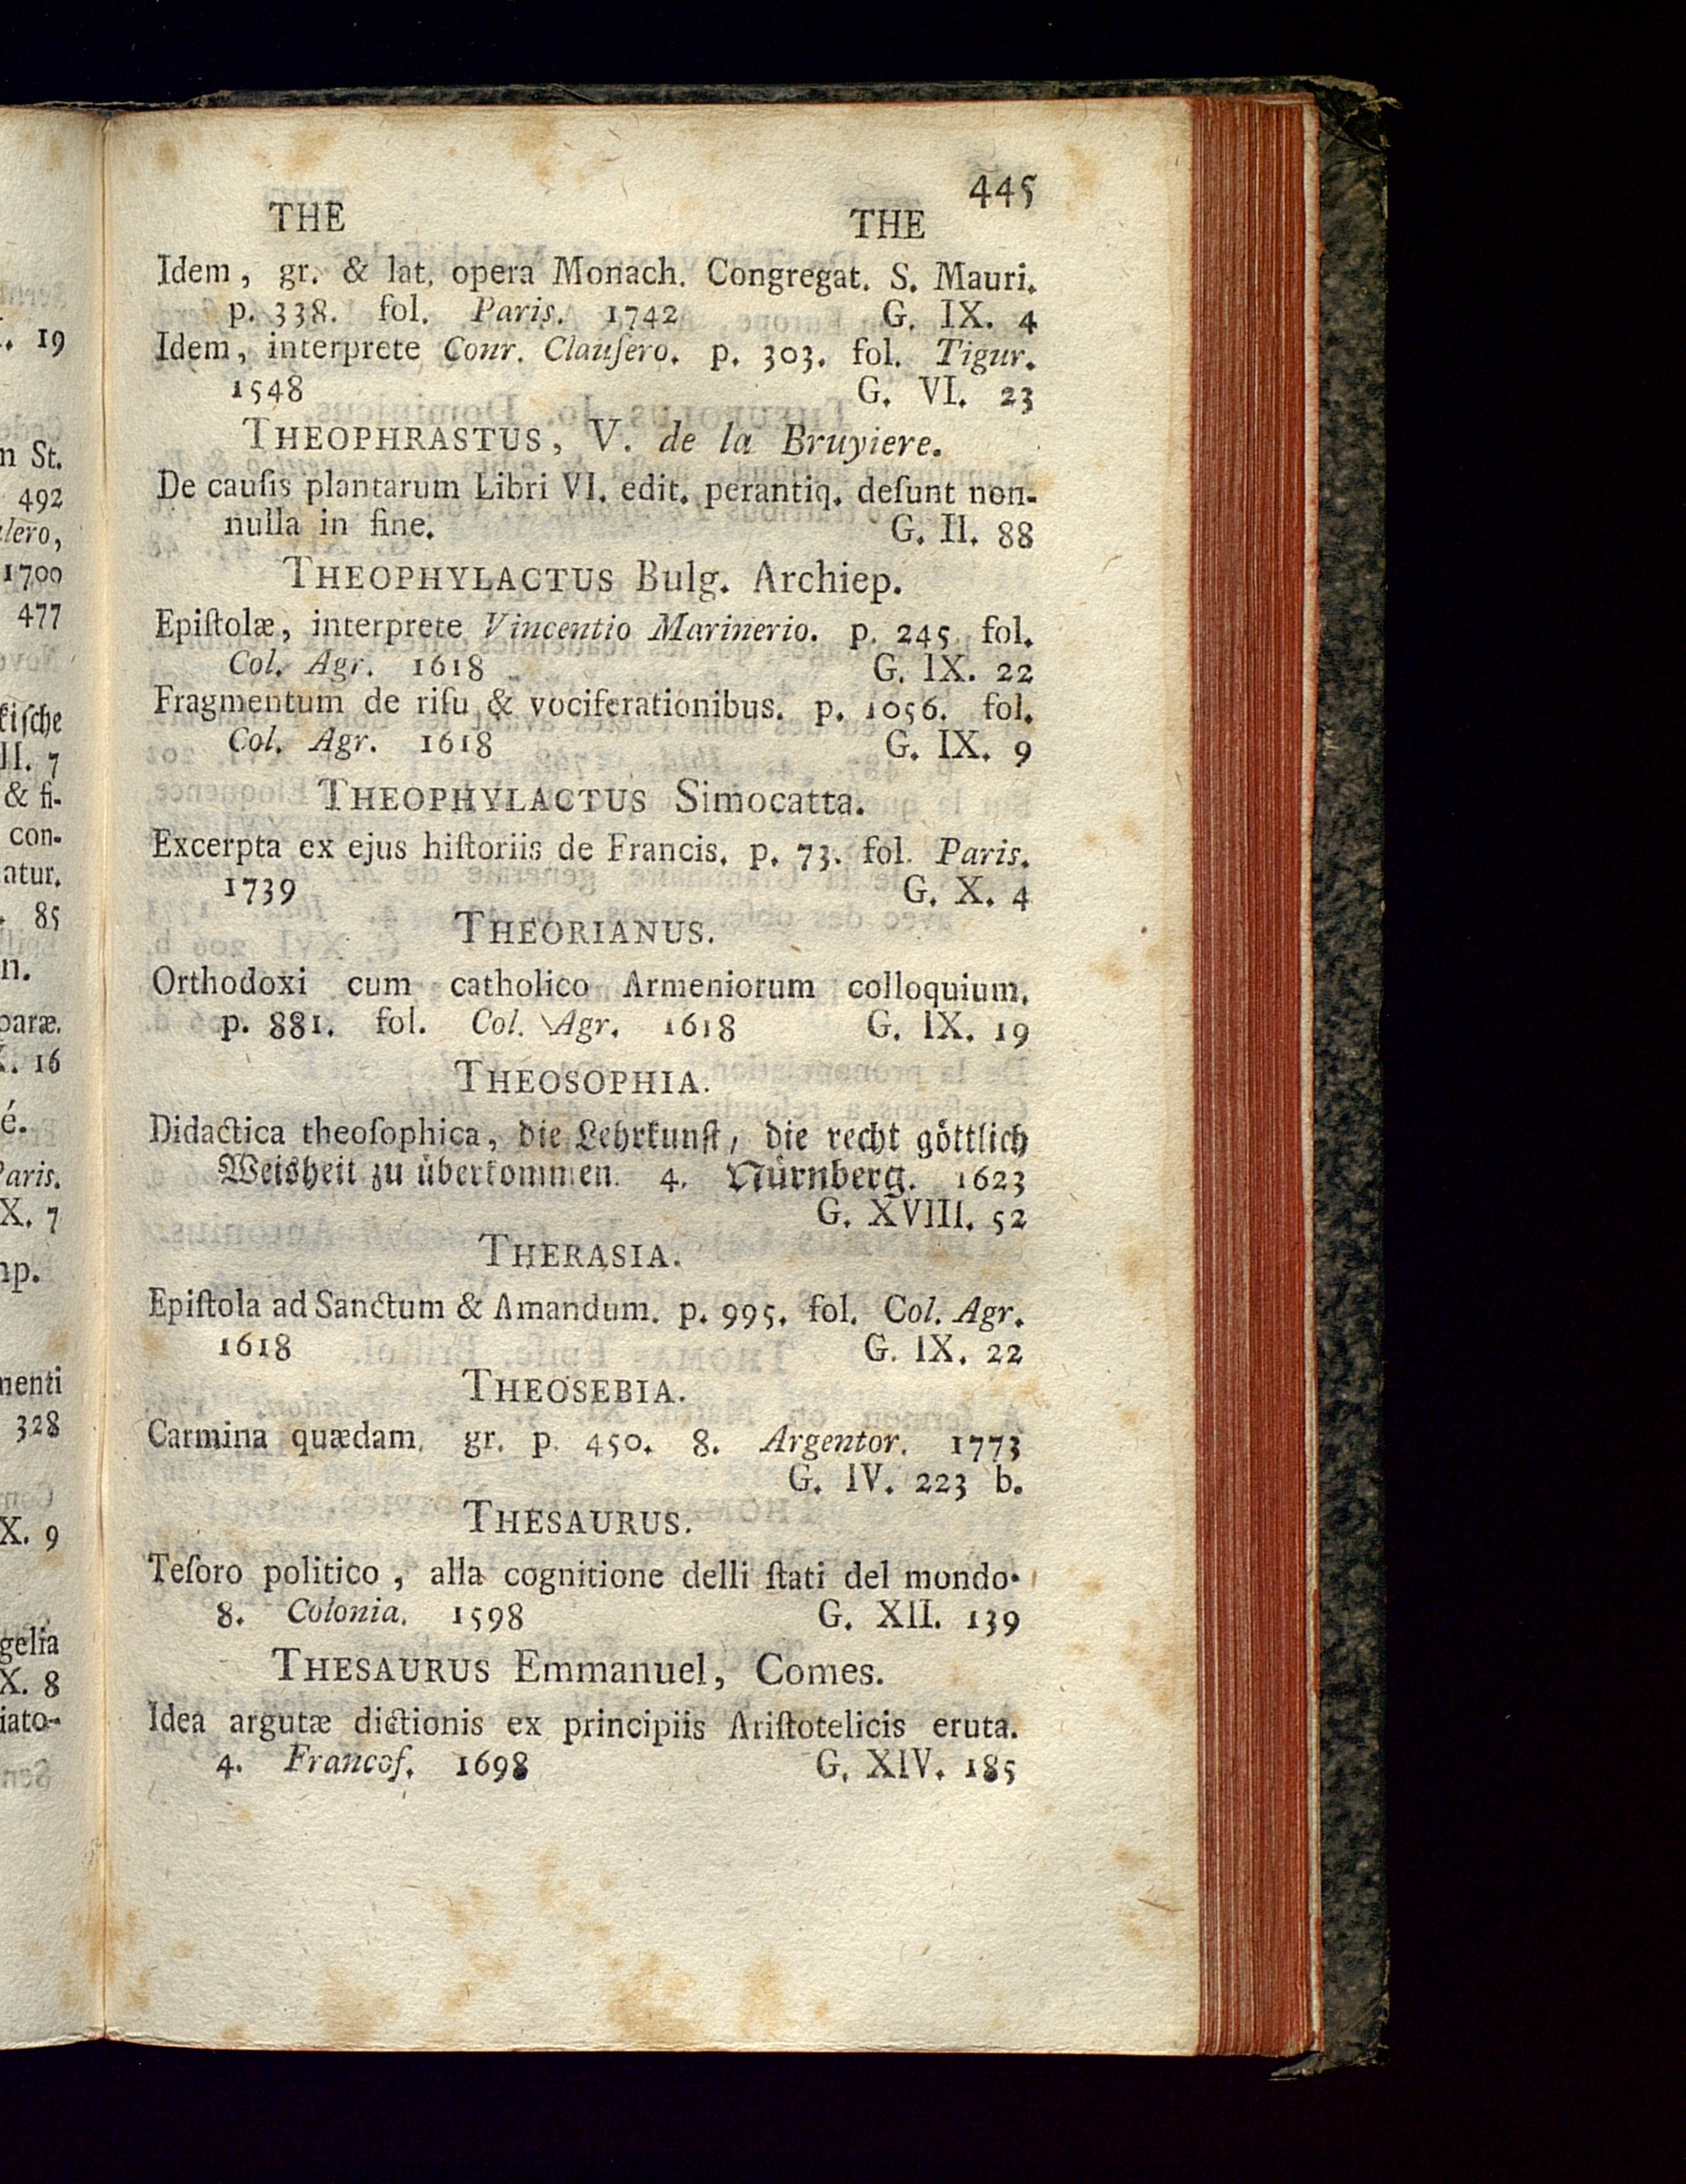 445
THE THE
Idem, gr. & lat. opera Monach. Congregat. S. Mauri.
p. 338. fol. Paris. 1742 G. IX. 4
Idem, interprete Conr. Clauſero. p. 303. fol. Tigur.
1548 G. VI. 23
THEOPHRASTUS, V. de la Bruyiere.
De cauſis plantarum Libri VI. edit. perantiq. deſunt non-
nulla in fine. G. II. 88
THEOPHYLACTUS Bulg. Archiep.
Epiſtolæ, interprete Vincentio Marinerio. p. 245. fol.
Col. Agr. 1618 G. IX. 22
Fragmentum de riſu & vociferationibus. p. 1056. fol.
Col. Agr. 1618 G. IX. 9
THEOPHYLACTUS Simocatta.
Excerpta ex ejus hiſtoriis de Francis. p. 73. fol. Paris.
1739 G. X. 4
THEORIANUS.
Orthodoxi cum catholico Armeniorum colloquium.
p. 881. fol. Col. Agr. 1618 G. IX. 19
THEOSOPHIA.
Didactica theoſophica, die Lehrkunſt, die recht göttlich
Weisheit zu überkommen. 4. Nürnberg. 1623
G. XVIII. 52
THERASIA.
Epiſtola ad Sanctum & Amandum. p. 995. fol. Col. Agr.
1618 G. IX. 22
THEOSEBIA.
Carmina quædam. gr. p. 450. 8. Argentor. 1773
G. IV. 223 b.
THESAURUS.
Teſoro politico, alla cognitione delli ſtati del mondo.
8. Colonia. 1598 G. XII. 139
THESAURUS Emmanuel, Comes.
Idea argutæ dictionis ex principiis Ariſtotelicis eruta.
4. Francof. 1698 G. XIV. 185